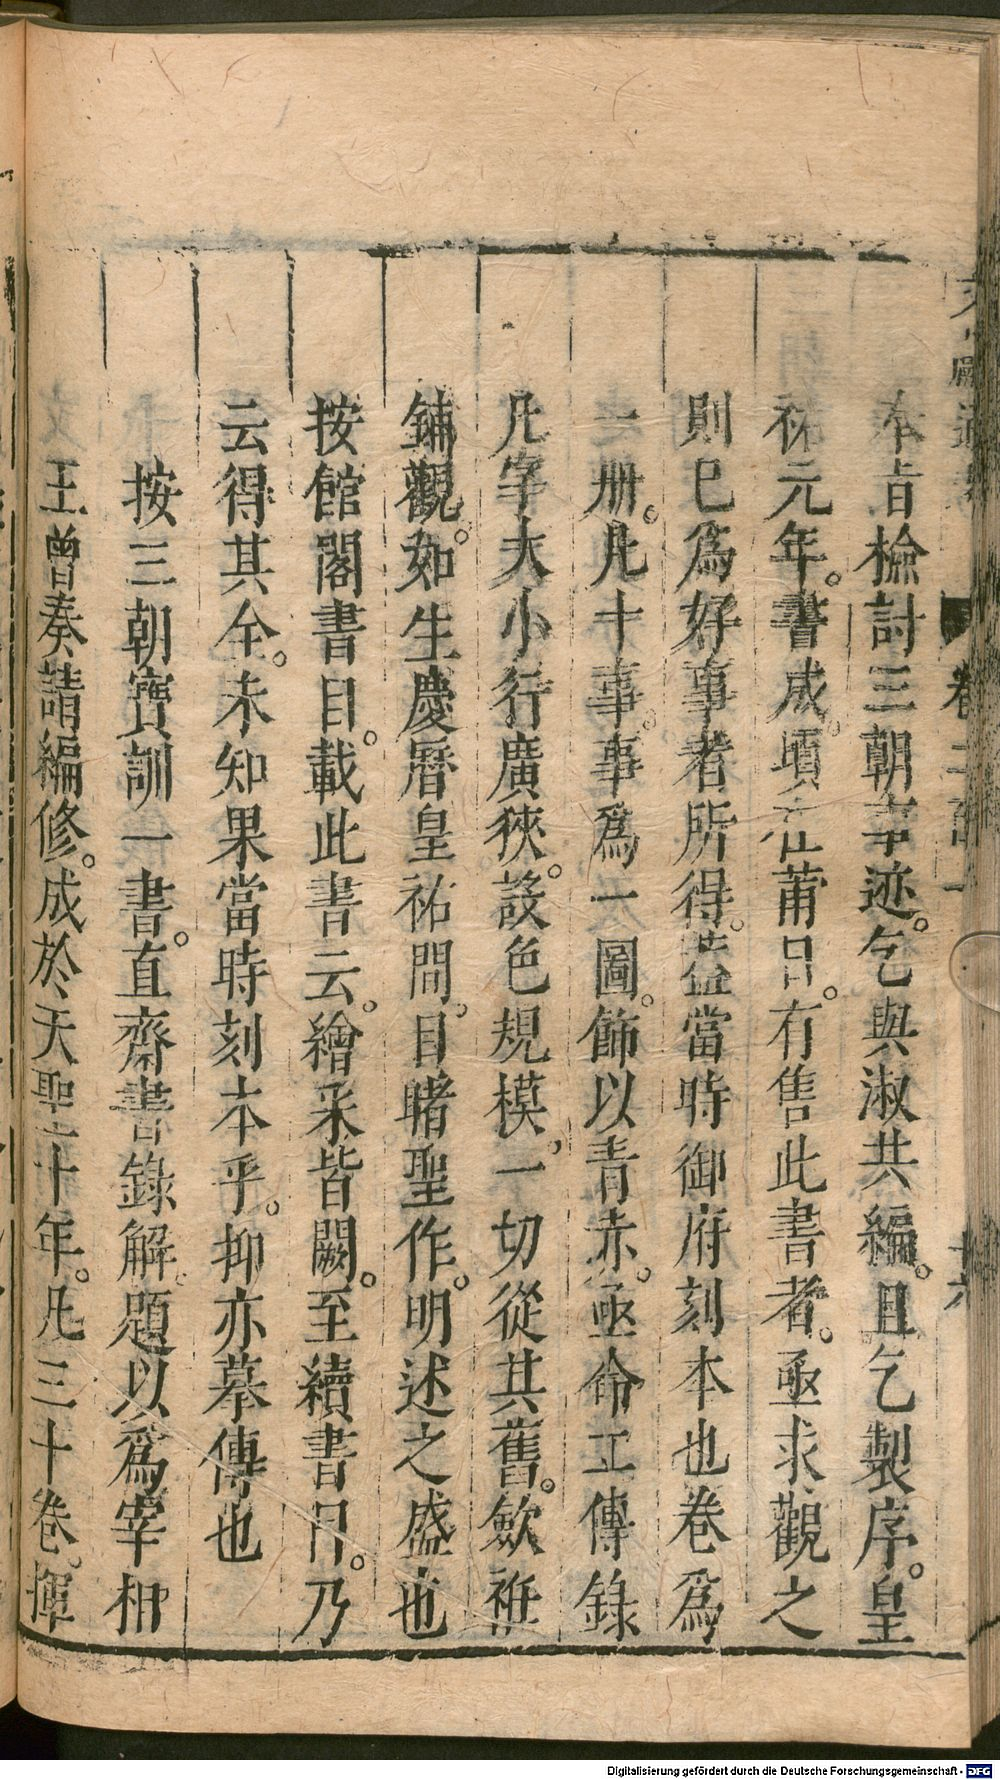 奉旨檢討三朝事迹。乞與淑共編。且乞製序。皇
祐元年。書成。頃在莆日。有售此書者。亟求觀之
則巳爲好事者所得。蓋當時御府刻本也卷爲
一册。凡十事。事爲一圖。飾以青赤。亟命工傳錄
凡字大小行廣狹。設色規模、一切從其舊。斂袵
鋪觀。如生慶曆皇祐間、目睹聖作。明述之盛也
按館閣書目。載此書云。繪采皆闕。至續書目。乃
云得其全。未知果當時刻本乎。抑亦摹傳也
按三朝寶訓一書。直齋書錄解題以爲宰相
王曾奏請編修。成於天聖十年。凡三十卷。揮
Digitalisierung gefördert durch die Deutsche Forschungsgemeinschaft - DFG